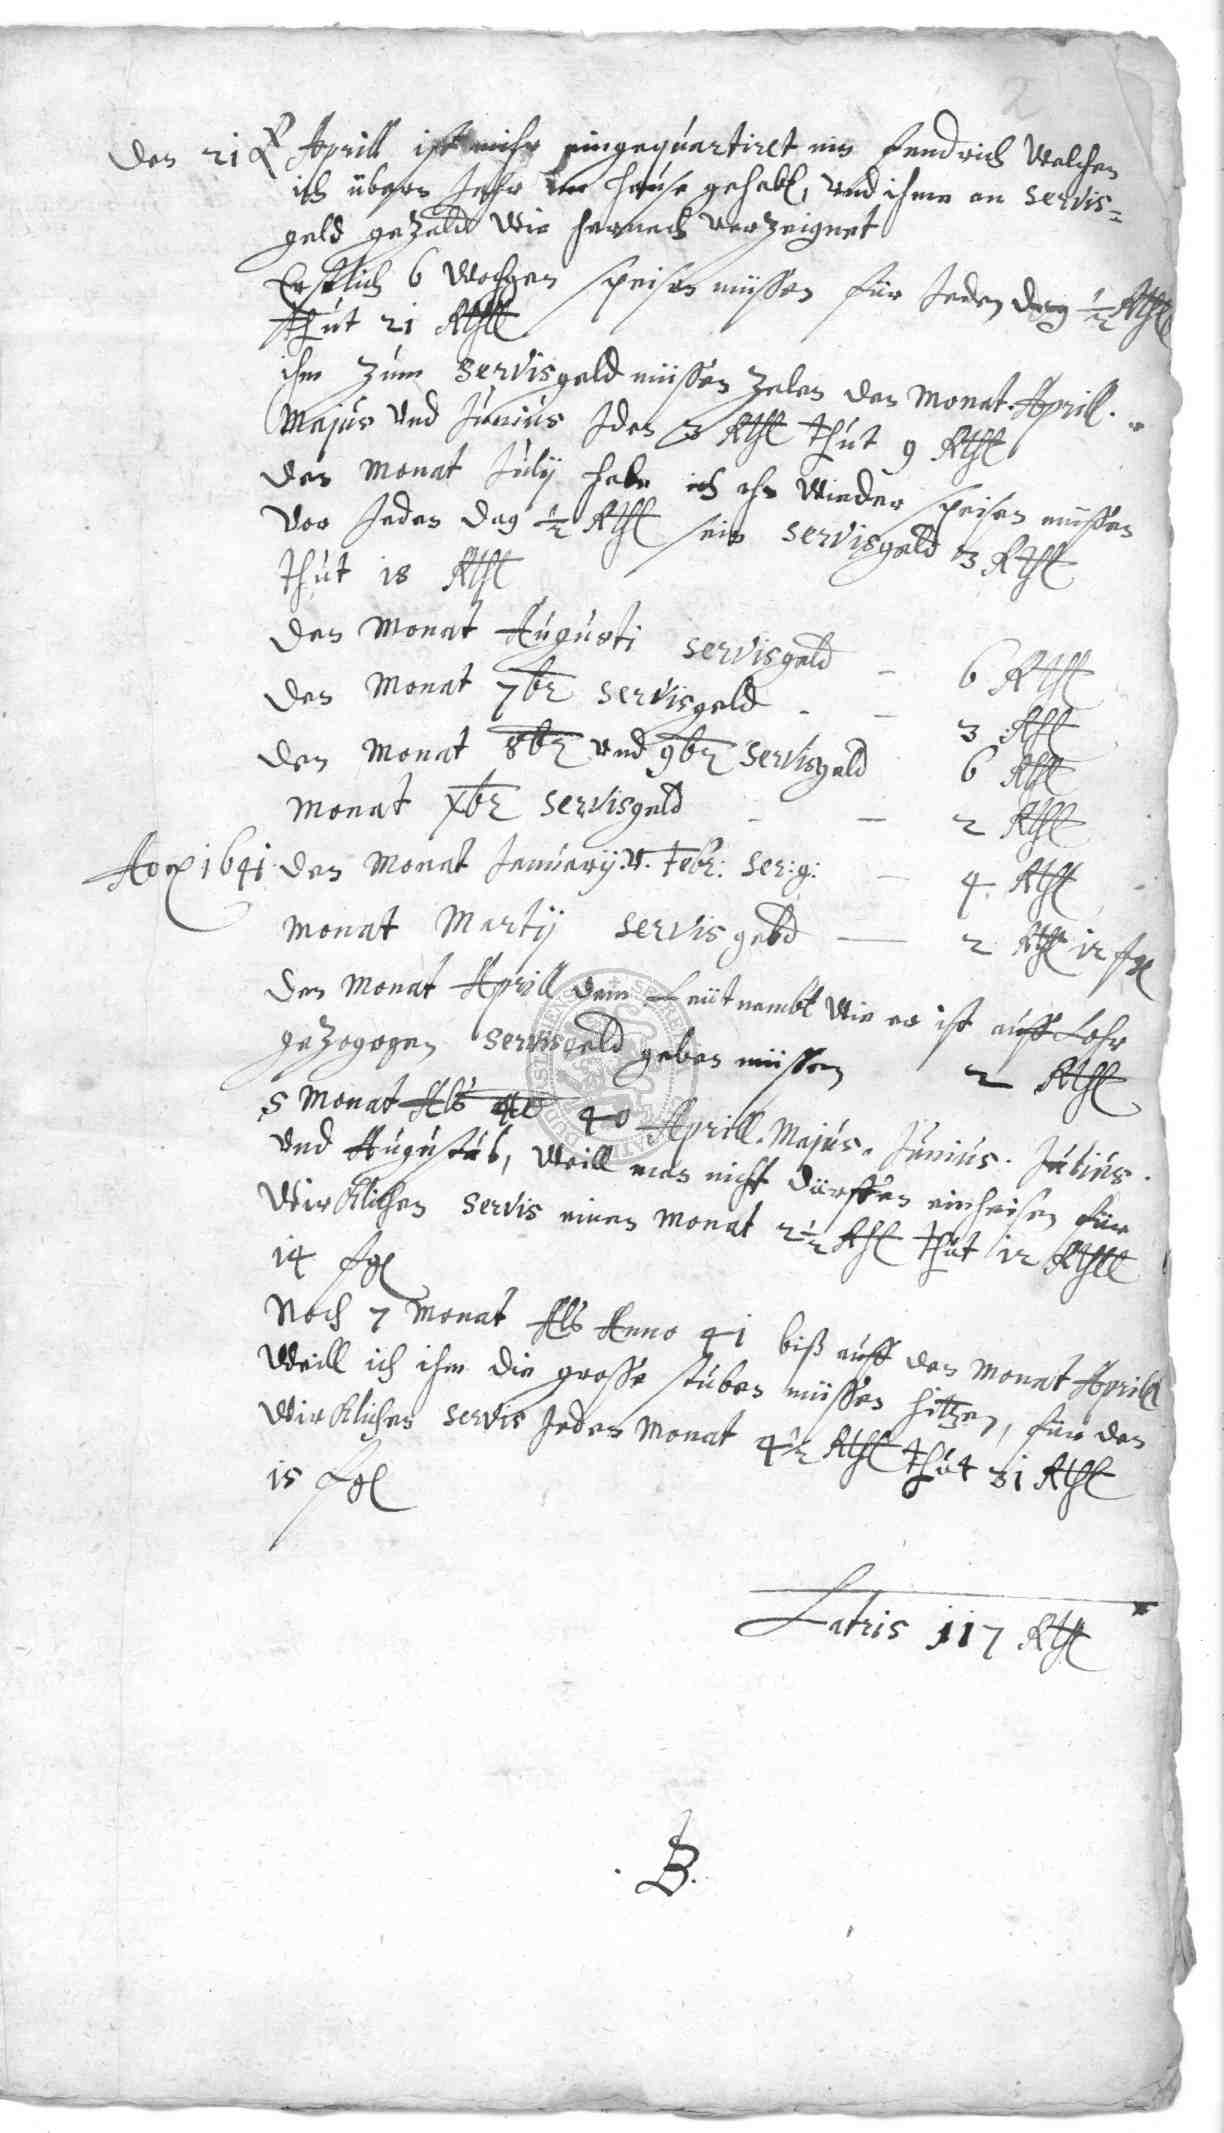 2
Den 21 Aprill ist mihr eingequartiret ein Fendrich welchen
ich übers Jahr im hause gehabt, und ihme an servis=
geld gezald wie hernach verzeignet
Erstlich 6 wochgen speisen müssen für Jeden dag ½ Rthl
thut 21 Rthl
ihm zum servisgeld müssen zalen den Monat. Aprill.
Majus und Junius Jden 3 Rthl thut 9 Rthl
den Monat Julÿ habe ich ihn wieder speisen müssen
vor Jeden dag ½ Rthl sein servisgeld 3 Rthl
thut 18 Rthl
den Monat Augusti servisgeld – 6 Rthl
den Monat 7br servisgeld - – 3 Rthl
den Monat 8br und 9br servisgeld 6 Rthl
Monat Xbr servisgeld - – 2 Rthl
Ao 1641 den Monat Januarÿ u. Febr: ser:g: – 4. Rthl
Monat Martÿ servisgeld — 2 Rthl 12 sgl
den Monat Aprill dem Leütnambt wie er ist auff Lohr
gezogegen servisgeld geben müssen 2 Rthl
5 Monat Als 40 Aprill. Majus. Junius. Julius.
und Augustus, weill man nicht dürffen einheisen für
wircklichen servis einen Monat 2½ Rthl thut 12 Rthll
14 sgl
Noch 7 Monat Als Anno 41 biß auff den Monat Aprill
weill ich ihm die grosse stuben müssen hitzen, für den
wircklichen servis Jeden Monat 4½ Rthl thut 31 Rthl
15 sgl
Latris 117 Rthl
. B.